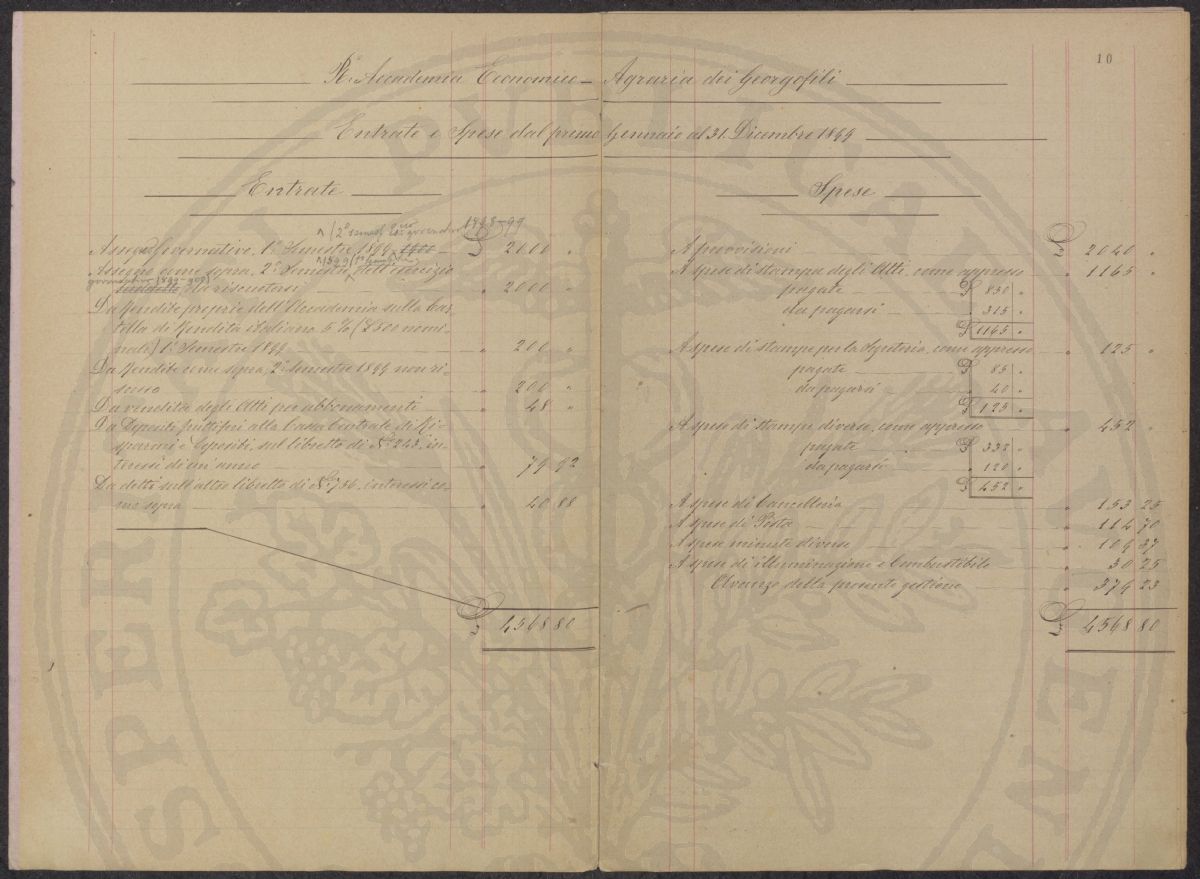 10
Rª Accademia Economico-Agraria dei Georgofili
Entrate e Spese dal primo Gennaio al 31. Dicembre 1899
Entrate
1898-99
Assegno Governativo, 1º Semestre 1899 £ 2000 "
1899
Assegno come sopra, 2º Semestre dell'esercizio
suddetto da riscuotersi " 2000 "
Da Rendite proprie dell'Accademia sulla Car-
tella di Rendita italiana 5 % (8500 nomi-
nali) 1º Semestre 1899 " 200 "
Da Rendite come sopra, 2º Semestre 1899 non ri-
scosse " 200 "
Da vendita degli Atti per abbonamenti " 48 "
Da Depositi fruttiferi alla Cassa Centrale di Ri-
sparmi e Depositi, sul libretto di Nº 243, in-
teressi di un anno " 79 92
Da detti sull'altro libretto di Nº 756, interessi co-
me sopra " 40 88
£ 4568 80
Spese
A provvisioni £ 2040 "
A spese di stampa degli Atti, come appresso " 1165 "
pagate £ 850 "
da pagarsi " 315 "
£ 1165 "
A spese di stampe per la Segreteria, come appresso " 125 "
pagate £ 85 "
da pagarsi " 40 "
£ 125 "
A spese di stampe diverse, come appresso " 452 "
pagate £ 332 "
da pagarsi " 120 "
£ 452 "
A spese di Cancelleria " 153 25
A spese di Posta " 114 70
A spese minute diverse " 109 37
A spese di illuminazione e Combustibile " 30 25
Avanzo della presente gestione " 379 23
£ 4568 80